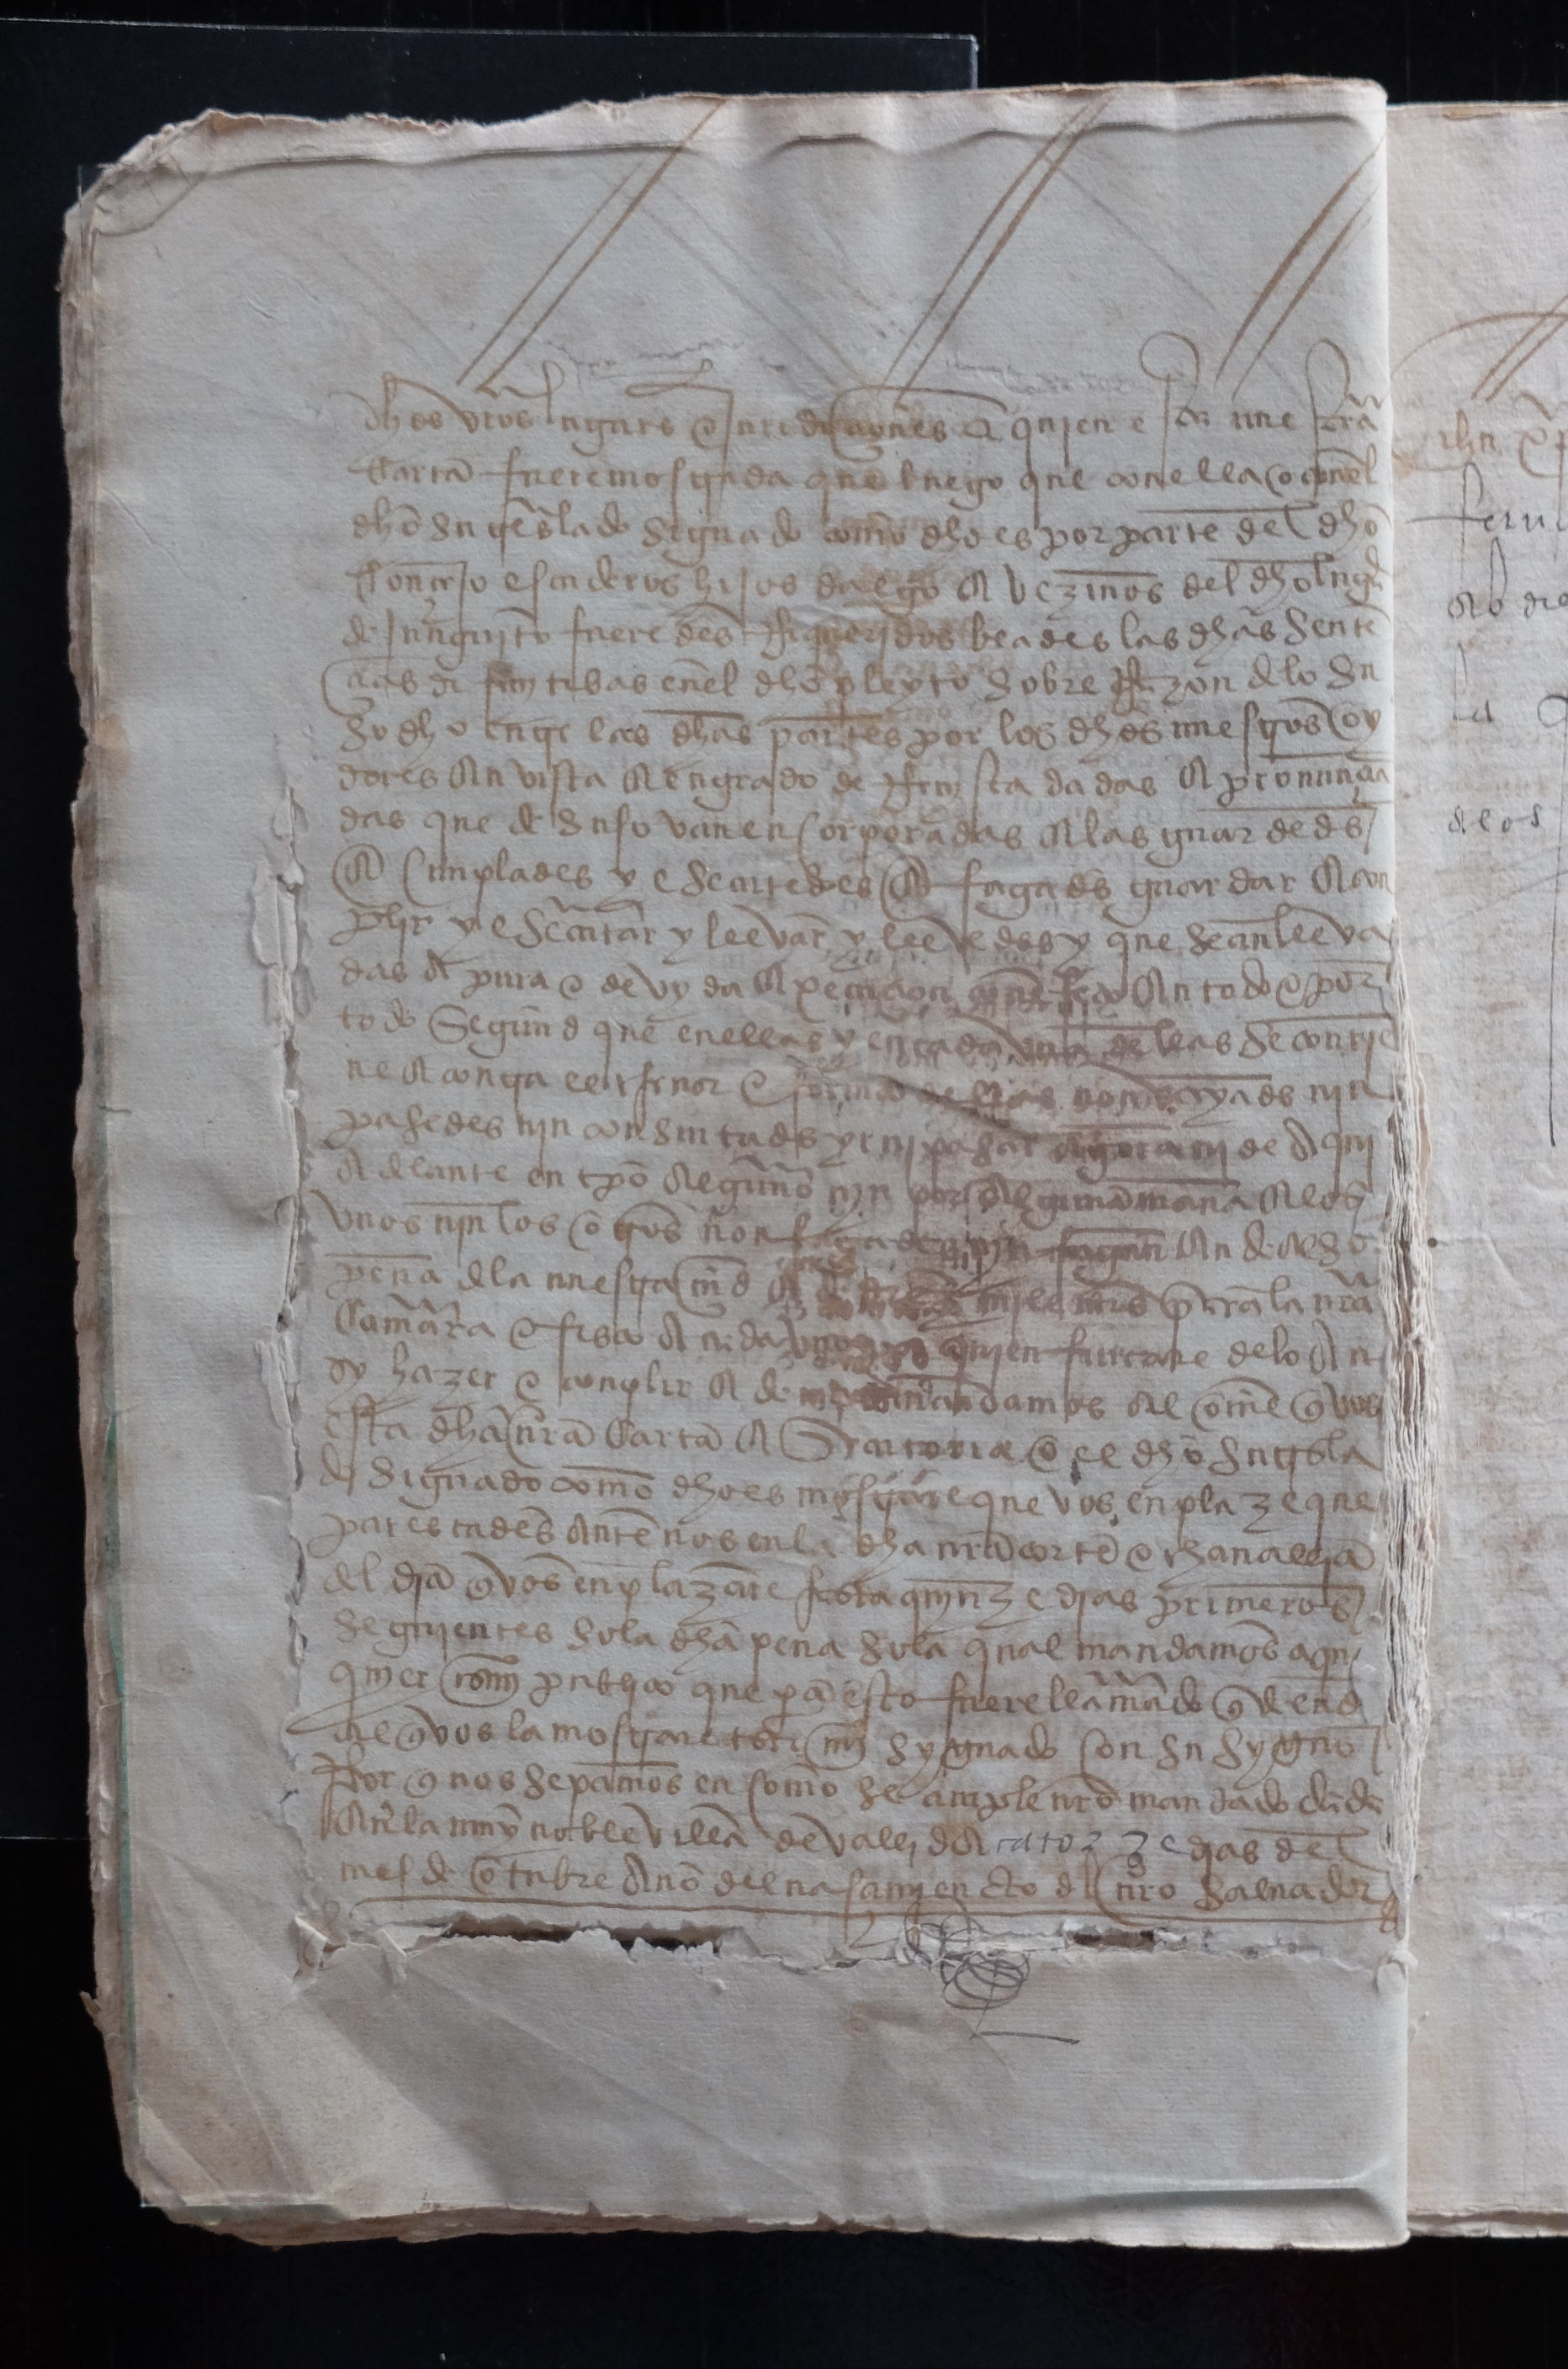 dhos vros lugares e juridiciones a quien esta nuestra
carta fuere mostrada que luego que con ella o con el
dho su treslado signado como dho es por parte del dho
conçejo escuderos hijosdalgo e vezinos del dho lugar
de junguytu fueredes requeridos beades las dhas senten
çias difinitibas en el dho pleyto sobre rrazon de lo su
sodho entre las dhas partes por los dhos nuestros oy
dores en vista e en grado de rrevista dadas e pronunçia
das que de suso van encorporadas e las guardedes
e cunplades y esecutedes e fagades guardar e cun
plir y esecutar y llevar y llevedes y que sean lleva
das a pura e devyda execuçion con efeto en todo e por
todo segund que en ellas y en cada una dellas se contie
ne e contra el thenor e forma dellas non vayades nin
pasedes nin consintades yr ni pasar agora ni de aqui
adelante en tpo alguno nin por alguna mana e los
unos nin los otros non fagades nin fagan ende al so
pena de la nuestra md e de mill mrs para la nra
camara e fisco a cada uno por quien fincare de lo an
sy hazer e conplir e demas mandamos al ome que vos
esta dha nra carta executoria o el dho su tresla
do signado como dho es mostrare que vos enplaze que
parescades ante nos en la dha nra corte e chancelleria
del dia que vos enplazare fasta quynze dias primeros
seguientes so la dha pena so la qual mandamos a qual
quier escrivano publico que para esto fuere llamado que de ende
al que vos la mostrare testimonio sygnado con su sygno
por que nos sepamos en como se cunple nro mandado dada
en la muy noble villa de valljd a catorze dias del
mes de otubre año del nasçimyento del nro salvador